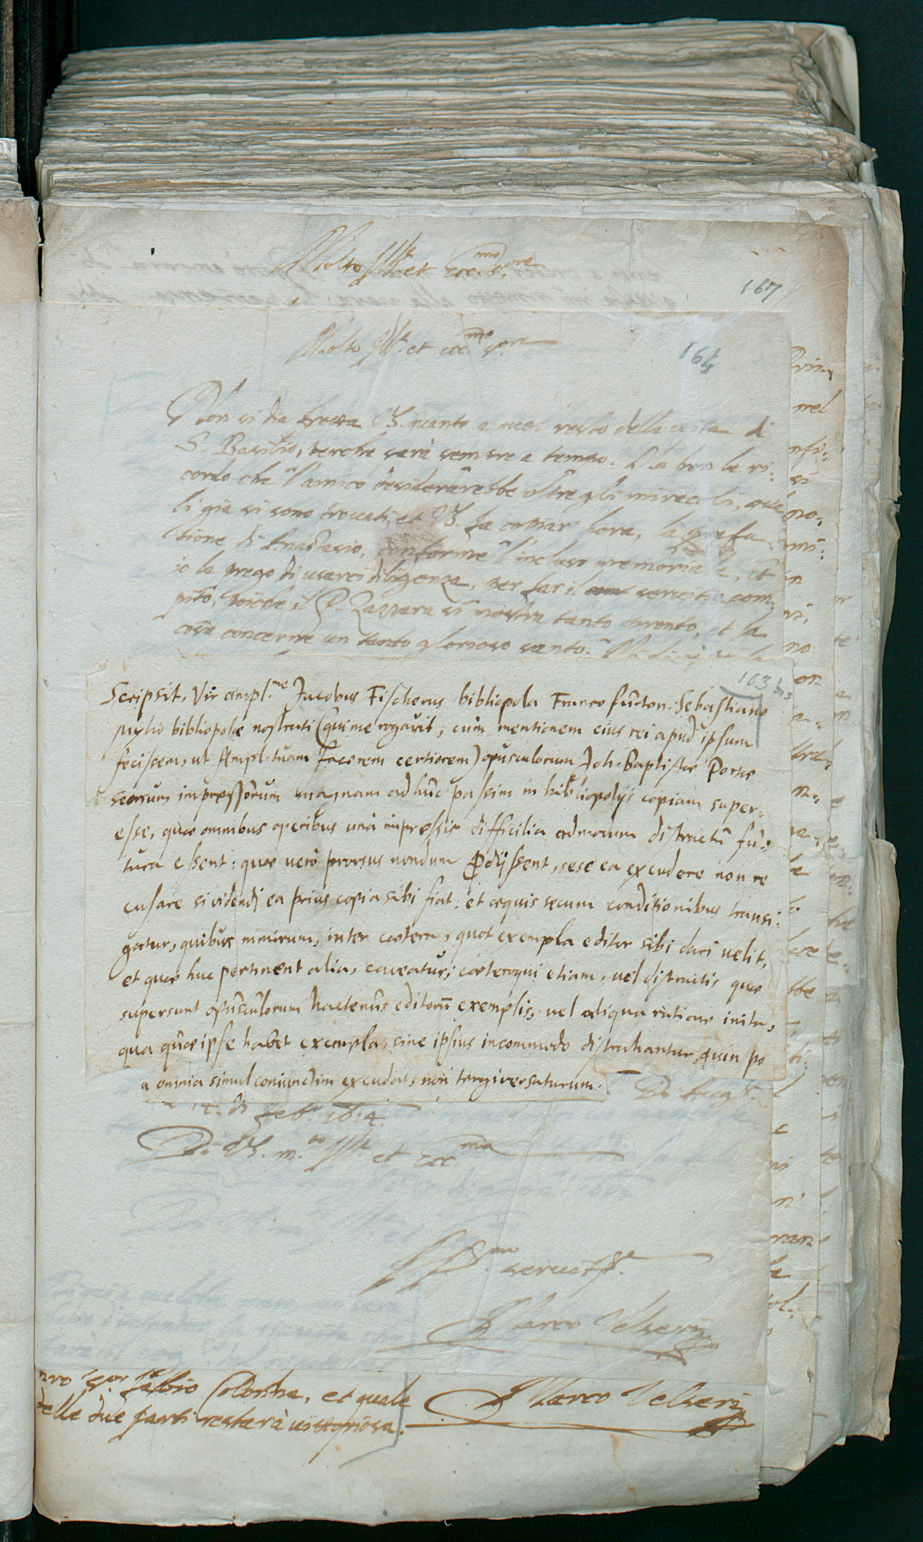 Molto Ill.e et Ecc.mo S.ore
167
Molto Ill.e et ecc.mo S.ore
164
Non si dia fretta V.S. quanto a quel resto della vita di
S. Basilio, perche sarà sempre a tempo. Ma ben le ri-
cordo che l'amico desiderarebbe oltre gli miracoli, qua
li gia si sono trovati, et V.S. fa copiar hora, la prefa
tione di Anastasio, conforme l'incluso memoriale, et
io la prego di usarci diligenza, per far il servitio com-
pito, poiche il P. Gazzara si mostra tanto pronto, et la
cosa concerne un tanto glorioso santo.
163 bis
Scripsit, Vir ampl.me Jacobus Fischerus bibliopola Francofurton. Sebastiano
Mylio bibliopolæ nostrati (qui me rogavit, cum mentionem eius rei apud ipsum
fecissem, ut Ampl. tuam facerem certiorem) opusculorum Joh. Baptistæ Portæ
seorsum impressorum magnam adhuc passim in bibliopolijs copiam super-
esse, quæ omnibus operibus unà impressis difficilia admodum distractu fu-
tura essent: quæ verò prorsus nondum prodijssent, sese ea excudere non re
cusare si videndj ea prius copia sibi fiat, et æquis secum conditionibus transi-
gatur, quibus nimirum, inter cætera, quot exempla editor sibi dari velit,
et quæ huc pertinent alia, caveatur; cæteroqui etiam, vel distractis quæ
supersunt opusculorum hactenus editorũ exemplis, vel aliqua ratione inita,
qua quæ ipse habet exempla, sine ipsius incommodo distrahantur, quin po
a omnia simul coniunctim excudat, non tergiversaturum.
Di Aug.
14. di Feb.o 1614.
Di V.S. m.to Ill.e et ecc.ma
servitor
Marco Velseri
nro S.or Fabio Colonna, et quale
delle due parti resterà vittoriosa.
Marco Velseri